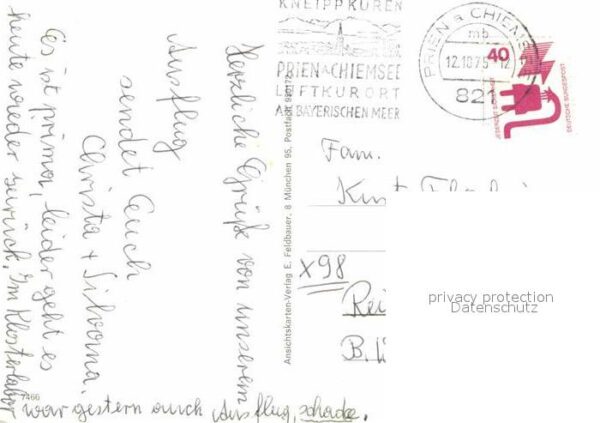 Herzliche Grüße von unserem
Ausflug
sendet Euch
Christa + Silvana.
Es ist prima, leider geht es
heute wieder zurück. Im Klosterlabor
war gestern auch Ausflug, schade.
7466
Ansichtskarten-Verlag E. Feldbauer, 8 München 95, Postfach 950170
KNEIPPKUREN
PRIEN A CHIEMSEE
LUFTKURORT
AM BAYERISCHEN MEER
PRIEN a CHIEMSEE
mb
12.10.75-12
821
40
JEDERZEIT SICHERHEIT
DEUTSCHE BUNDESPOST
Fam.
x98
Rei
privacy protection
Datenschutz